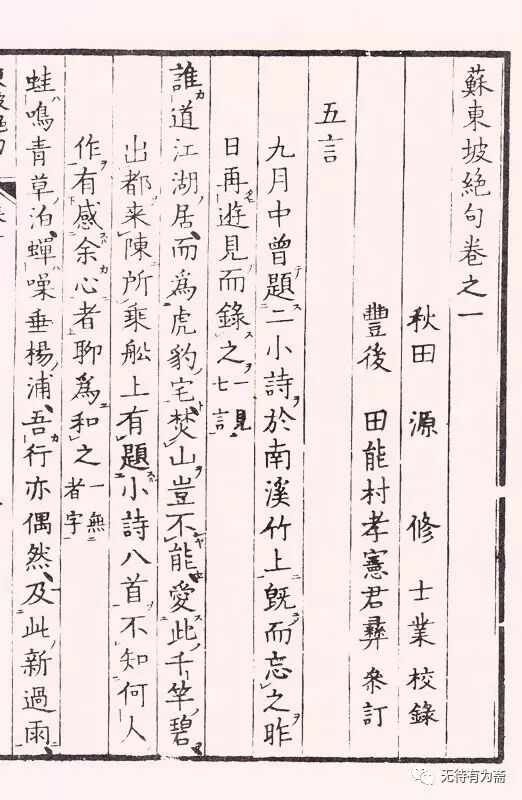 蘇東坡絶句卷之一
秋田 源 修 士業 校錄
豐後 田能村孝憲君彝 叅訂
五言
九月中曾題二小詩於南溪竹上既而忘之昨
日再遊見而錄之一見七言
誰道江湖居而爲虎豹宅焚山豈不能愛此千竿碧
出都来陳所乘船上有題小詩八首不知何人
作有感余心者聊爲和之一無者字
蛙鳴青草泊蟬噪垂楊浦吾行亦偶然及此新過雨
无待有为斋